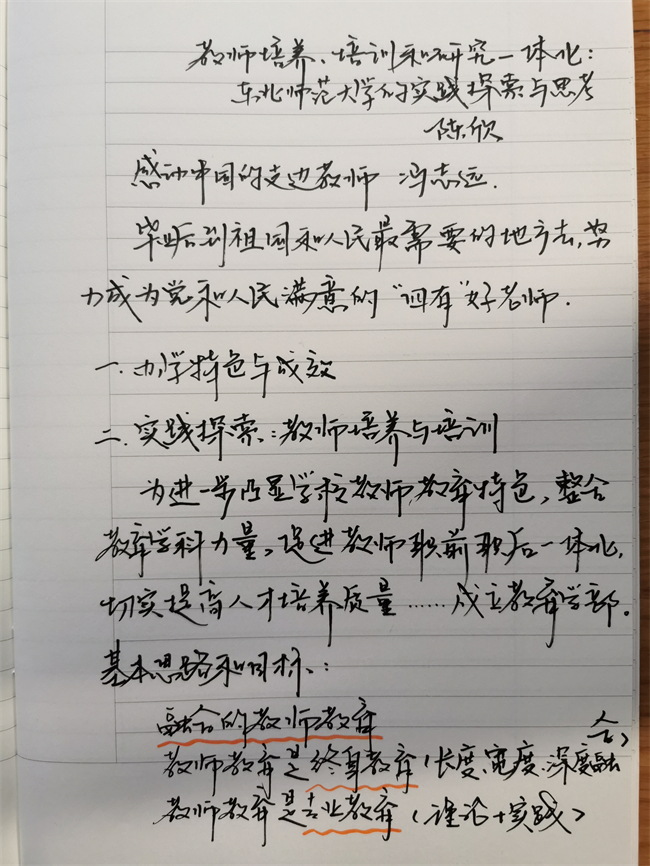 教师培养、培训和研究一体化：
东北师范大学的实践探索与思考
陈欣
感动中国的支边教师 冯志远.
毕业后到祖国和人民最需要的地方去,努
力成为党和人民满意的“四有”好老师.
一.办学特色与成效
二.实践探索：教师培养与培训
为进一步凸显学校教师教育特色,整合
教育学科力量,促进教师职前职后一体化,
切实提高人才培养质量……成立教育学部.
基本思路和目标：
融合的教师教育
教师教育是终身教育(长度、宽度、深度融
合)
教师教育是专业教育(理论+实践)